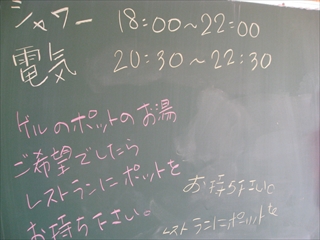 シャワー 18:00〜22:00
電気 20:30〜22:30
ゲルのポットのお湯
ご希望でしたら
レストランにポットを
お持ち下さい。
お持ち下さい。
レストランにポットを